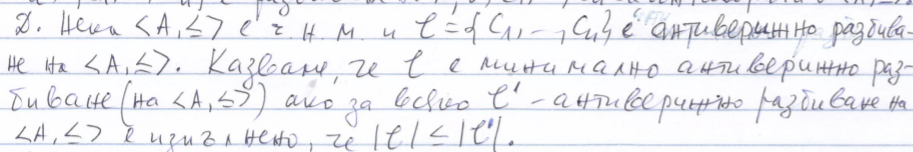 Д. Нека <A,≤> е ч.н.м. и ℓ={C₁,-,Cₗ} е антиверижно разбива-
не на <A,≤>. Казваме, че ℓ е минимално антиверижно раз-
биване (на <A,≤>) ако за всяко ℓ' - антиверижно разбиване на
<A,≤> е изпълнено, че |ℓ| ≤ |ℓ'|.